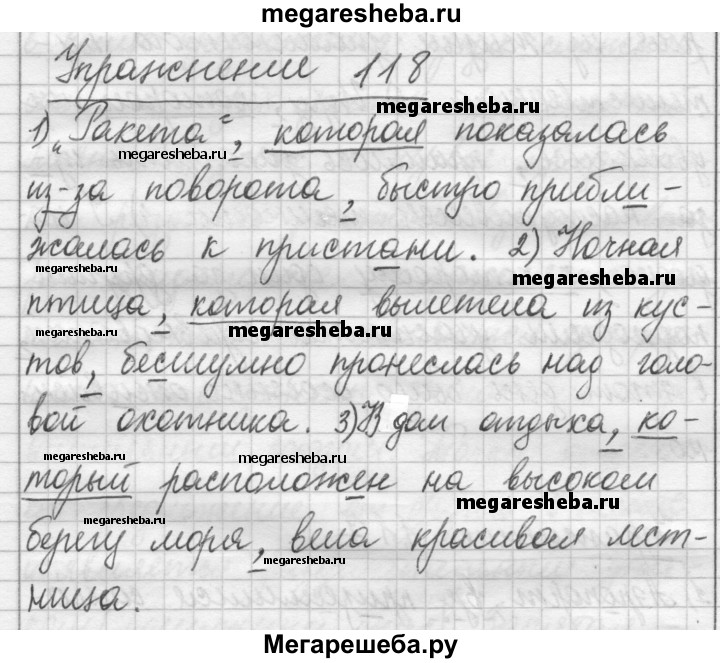 megaresheba.ru
Упражнение 118
megaresheba.ru
1) „Ракета“, которая показалась
megaresheba.ru
из-за поворота, быстро прибли-
жалась к пристани. 2) Ночная
megaresheba.ru
megaresheba.ru
птица, которая вылетела из кус-
megaresheba.ru
megaresheba.ru
тов, бесшумно пронеслась над голо-
вой охотника. 3) В дом отдыха, ко-
megaresheba.ru
megaresheba.ru
торый расположен на высоком
megaresheba.ru
megaresheba.ru
берегу моря, вела красивая лест-
megaresheba.ru
ница.
Мегарешеба.ру